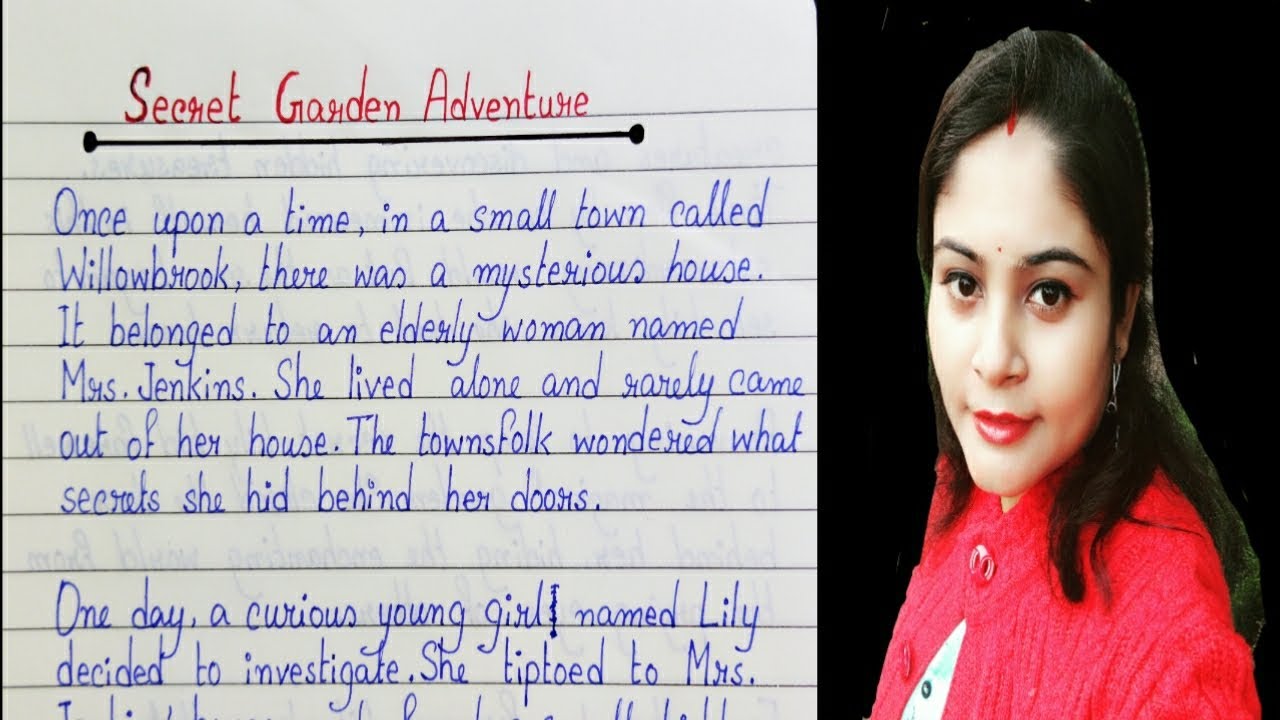 Secret Garden Adventure
Once upon a time, in a small town called
Willowbrook, there was a mysterious house.
It belonged to an elderly woman named
Mrs. Jenkins. She lived alone and rarely came
out of her house. The townsfolk wondered what
secrets she hid behind her doors.
One day, a curious young girl named Lily
decided to investigate. She tiptoed to Mrs.